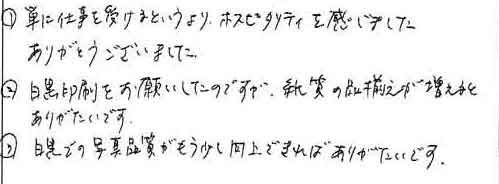 ① 単に仕事を受けるというより、ホスピタリティを感じました
ありがとうございました。
② 白黒印刷をお願いしたのですが、紙質の品揃えが増えると
ありがたいです。
③ 白黒での写真品質がもう少し向上できればありがたいです。